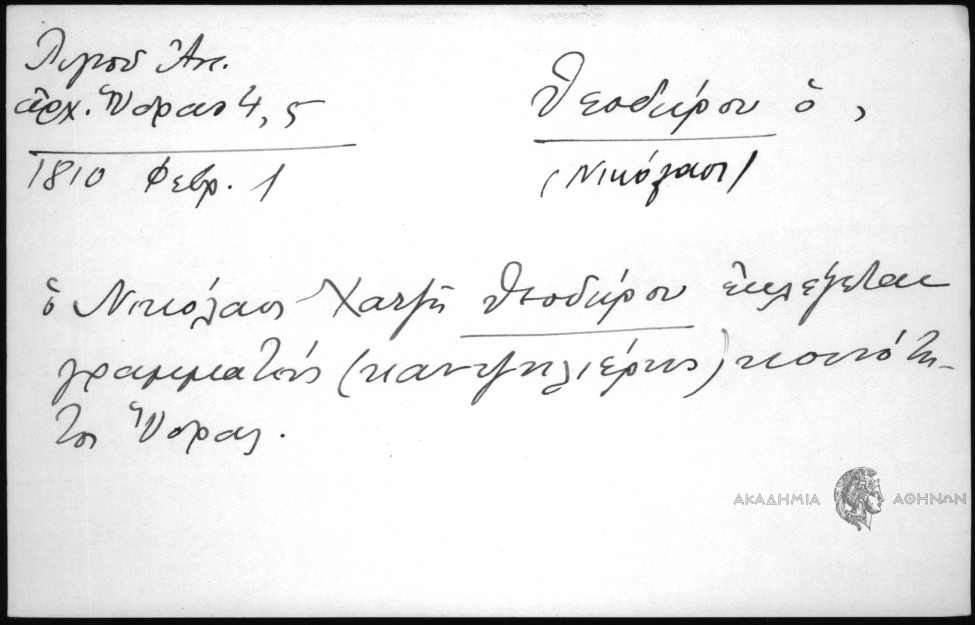 Λιγνοῦ Ἀντ.
ἀρχ. Ὕδρας 4, 5
1810 Φεβρ. 1
Θεοδώρου ὁ,
(Νικόλαος)
ὁ Νικόλαος Χατζῆ Θεοδώρου ἐκλέγεται
γραμματεύς (καντζηλιέρης) κοινότη-
τος Ὕδρας.
ΑΚΑΔΗΜΙΑ ΑΘΗΝΩΝ